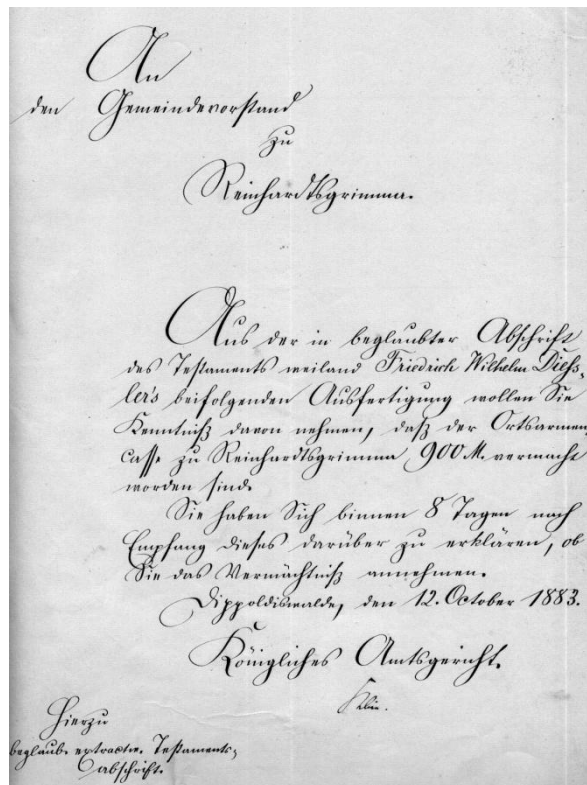 An
den Gemeindevorstand
zu
Reinhardtsgrimma.
Aus der in beglaubter Abschrift
des Testaments weiland Friedrich Wilhelm Dieß-
ler's beifolgenden Ausfertigung wollen Sie
Kenntniß davon nehmen, daß der Ortsarmen-
casse zu Reinhardtsgrimma 900 M. vermacht
worden sind.
Sie haben Sich binnen 8 Tagen nach
Empfang dieses darüber zu erklären, ob
Sie das Vermächtniß annehmen.
Dippoldiswalde, den 12. October 1883.
Königliches Amtsgericht.
Hierzu
beglaub. extractw. Testaments-
abschrift.